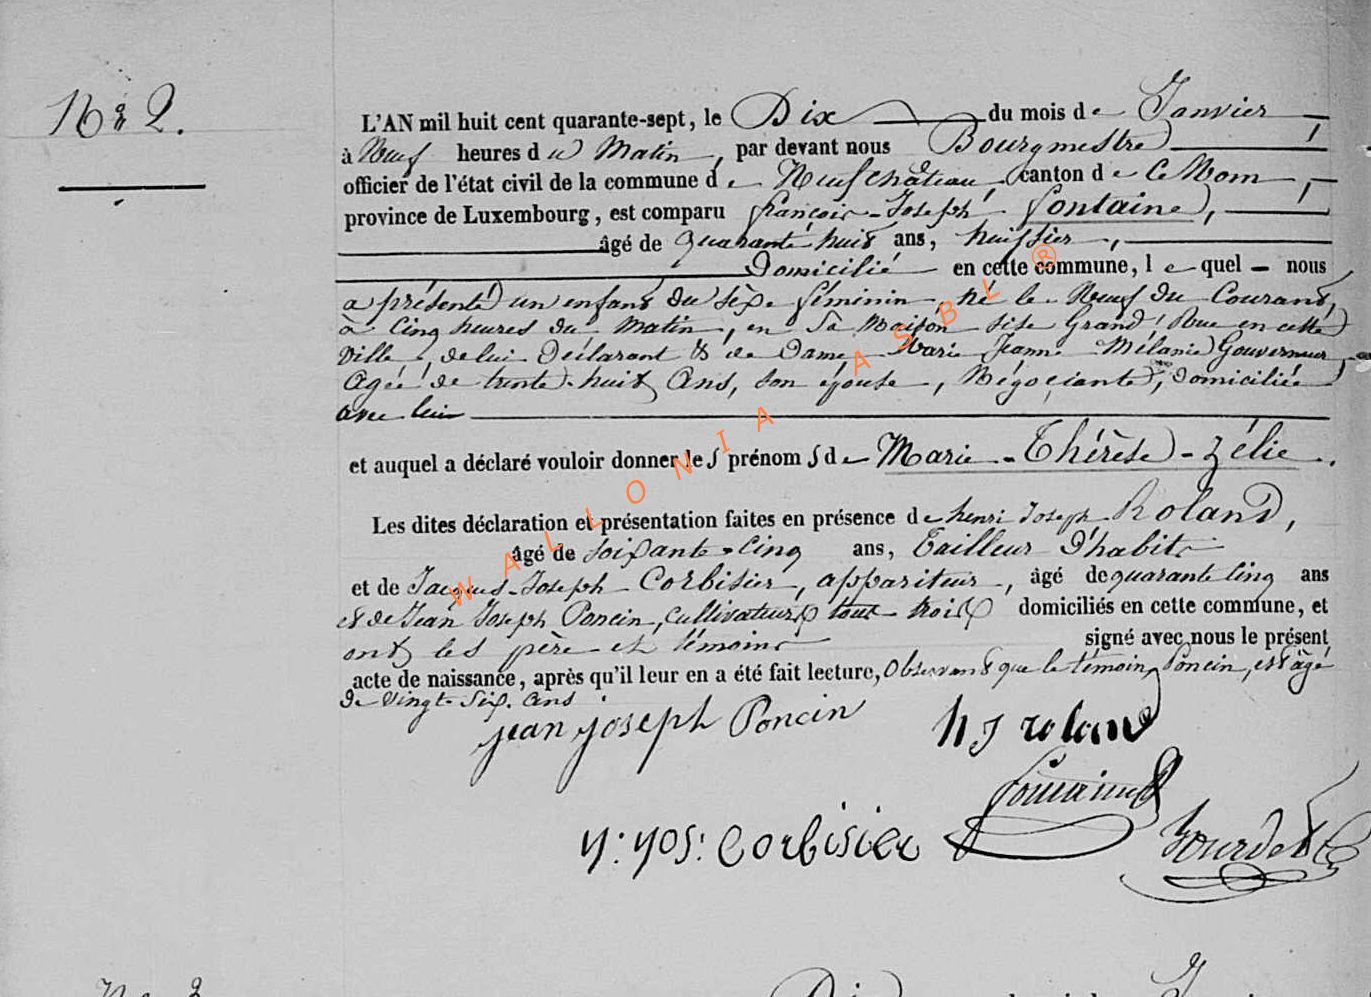 Nº 2.
L'AN mil huit cent quarante-sept, le Dix du mois de Janvier
à Neuf heures du Matin, par devant nous Bourgmestre,
officier de l'état civil de la commune de Neufchâteau, canton de Ce Nom,
province de Luxembourg, est comparu françois-Joseph fontaine,
âgé de quarante huit ans, huissier,
Domicilié en cette commune, lequel nous
a présenté un enfant du sèxe féminin, né le Neuf du Courant,
à Cinq heures du matin, en sa maison sise Grand'Rue en cette
ville, de lui Déclarant & de Dame Marie Jeanne Mélanie Gouverneur,
agée de trente-huit Ans, son épouse, Négociante, domiciliée
avec lui
et auquel a déclaré vouloir donner les prénoms de Marie-Thérèse-Zélie.
Les dites déclaration et présentation faites en présence de henri Joseph Roland,
âgé de soixante-cinq ans, Tailleur d'habits
et de Jacques-Joseph Corbisier, appariteur, âgé de quarante cinq ans
et de Jean Joseph Poncin, Cultivateur, tous trois domiciliés en cette commune, et
ont les père et témoins signé avec nous le présent
acte de naissance, après qu'il leur en a été fait lecture, Observant que le témoin Poncin, est âgé
de vingt-six ans
jean joseph Poncin
h J roland
fontaine
J: jos: Corbisier
Bourdet
WALLONIA ASBL ®
Dix